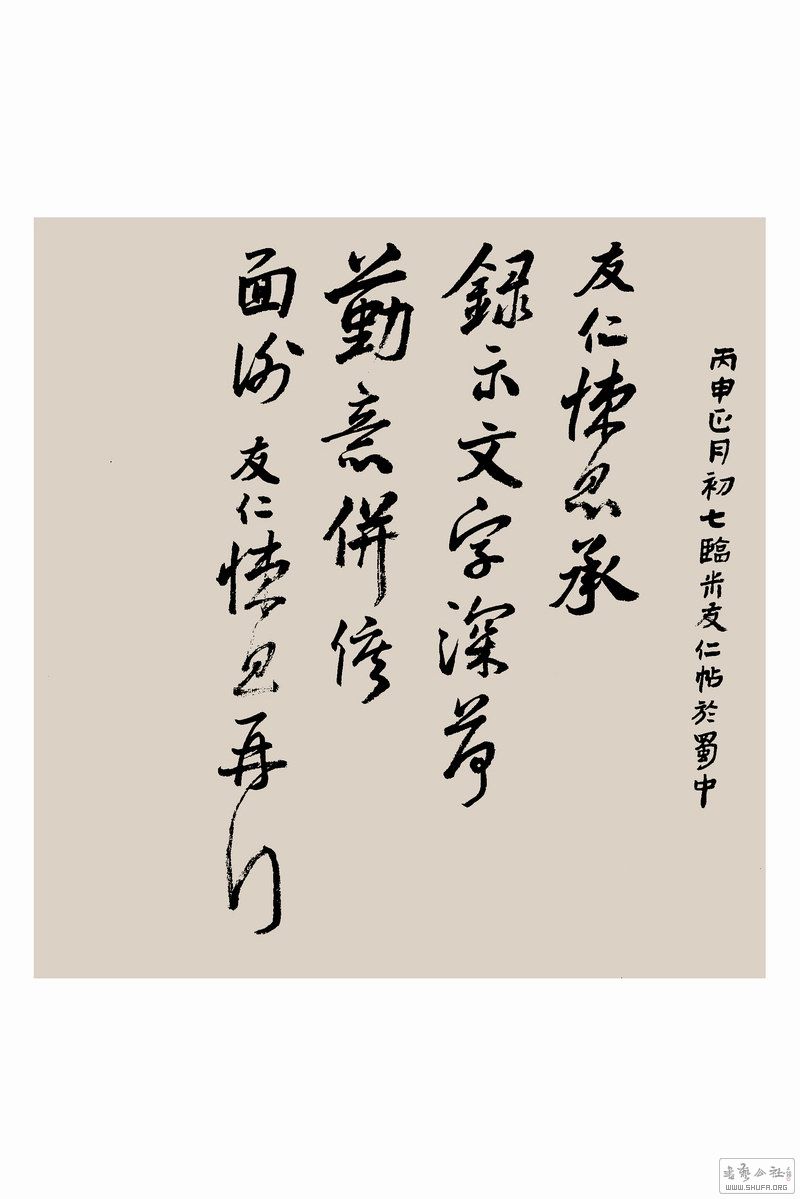 丙申正月初七臨米友仁帖於蜀中
友仁悚息承
録示文字深荷
勤意併俟
面謝 友仁悚息再行
書藝公社
WWW.SHUFA.ORG